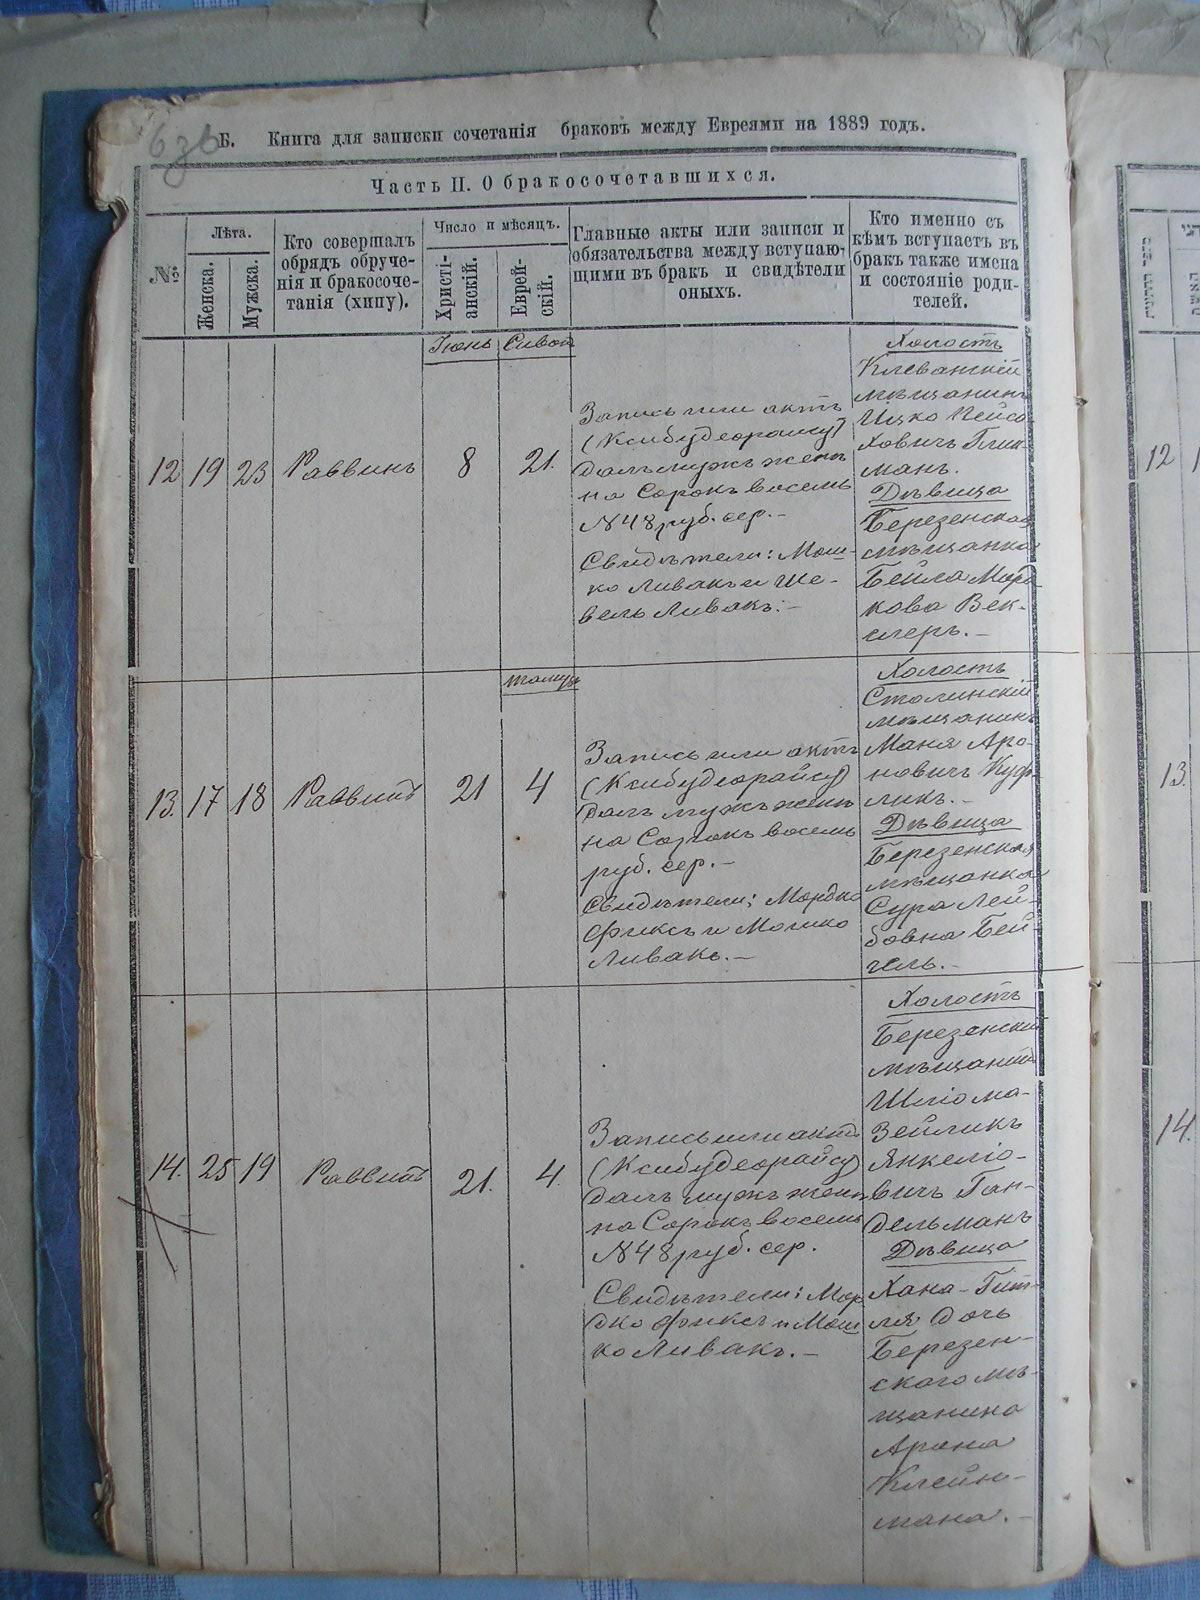 636
Б. Книга для записки сочетанія браковъ между Евреями на 1889 годъ.
Часть II. О бракосочетавшихся.
№
Лѣта.
Женска.
Мужска.
Кто совершалъ
обрядъ обруче-
нія и бракосоче-
танія (хипу).
Число и мѣсяцъ.
Христі-
анскій.
Еврей-
скій.
Главные акты или записи и
обязательства между вступаю-
щими въ бракъ и свидѣтели
оныхъ.
Кто именно съ
кѣмъ вступаетъ въ
бракъ также имена
и состояніе роди-
телей.
Іюнь
Сивон
12
19
23
Раввинъ
8
21.
Запись или актъ
(Ксибудеорайсу)
далъ мужъ женѣ
на Сорокъ восемь
№ 48 руб. сер. –
Свидѣтели: Мош-
ко Ливакъ и Ше-
вель Ливакъ. –
Холостъ
Клеванскій
мѣщанинъ
Ицко Пейса-
ховичъ Глик-
манъ.
Дѣвица
Березенская
мѣщанка
Бейла Морд-
кова Век-
слеръ. –
13.
17
18
Раввинъ
21
тамузъ
4
Запись или актъ
(Ксибудеорайсу)
далъ мужъ женѣ
на Сорокъ восемь
руб. сер. –
Свидѣтели: Мордко
Фиксъ и Мошко
Ливакъ. –
Холостъ
Столинскій
мѣщанинъ
Маня Аро-
новичъ
ликъ. –
Дѣвица
Березенская
мѣщанка
Сура Лей-
бовна Бей-
гель. –
14.
25
19
Раввинъ
21.
4.
Запись или актъ
(Ксибудеорайсу)
далъ мужъ женѣ
на Сорокъ восемь
№ 48 руб. сер.
Свидѣтели: Мор
дко Фиксъ и Мош
ко Ливакъ. –
Холостъ
Березенскій
мѣщанинъ
Шліома-
Зейликъ
Янкеліо-
вичъ Ган-
дельманъ
Дѣвица
Хана-Гит-
ля дочь
Березен-
скаго мѣ-
щанина
Арона
Клейн-
мана. –
12
13.
14.